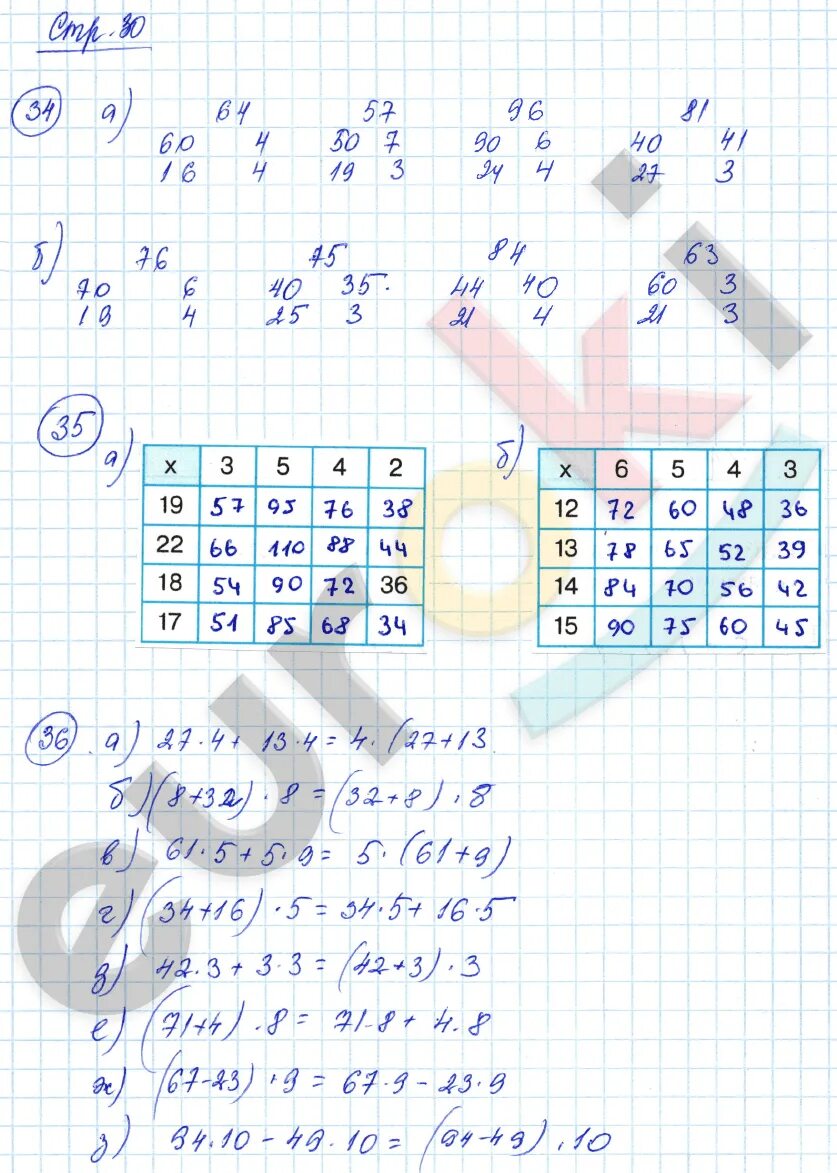 Стр. 30
34 а) 64 57 96 81
60 4 50 7 90 6 40 41
16 4 19 3 24 4 27 3
б) 76 75 84 63
70 6 40 35. 44 40 60 3
19 4 25 3 21 4 21 3
35
а)
x 3 5 4 2
19 57 95 76 38
22 66 110 88 44
18 54 90 72 36
17 51 85 68 34
б)
x 6 5 4 3
12 72 60 48 36
13 78 65 52 39
14 84 70 56 42
15 90 75 60 45
36 . а) 27·4+ 13·4=4·(27+13
б) (8+32)·8=(32+8)·8
в) 61·5+5·9= 5·(61+9)
г) (34+16)·5=34·5+16·5
д) 42·3+3·3=(42+3)·3
е) (71+4)·8= 71·8+4·8
ж) (67-23)·9=67·9-23·9
з) 94·10-49·10=(94-49)·10
euroki